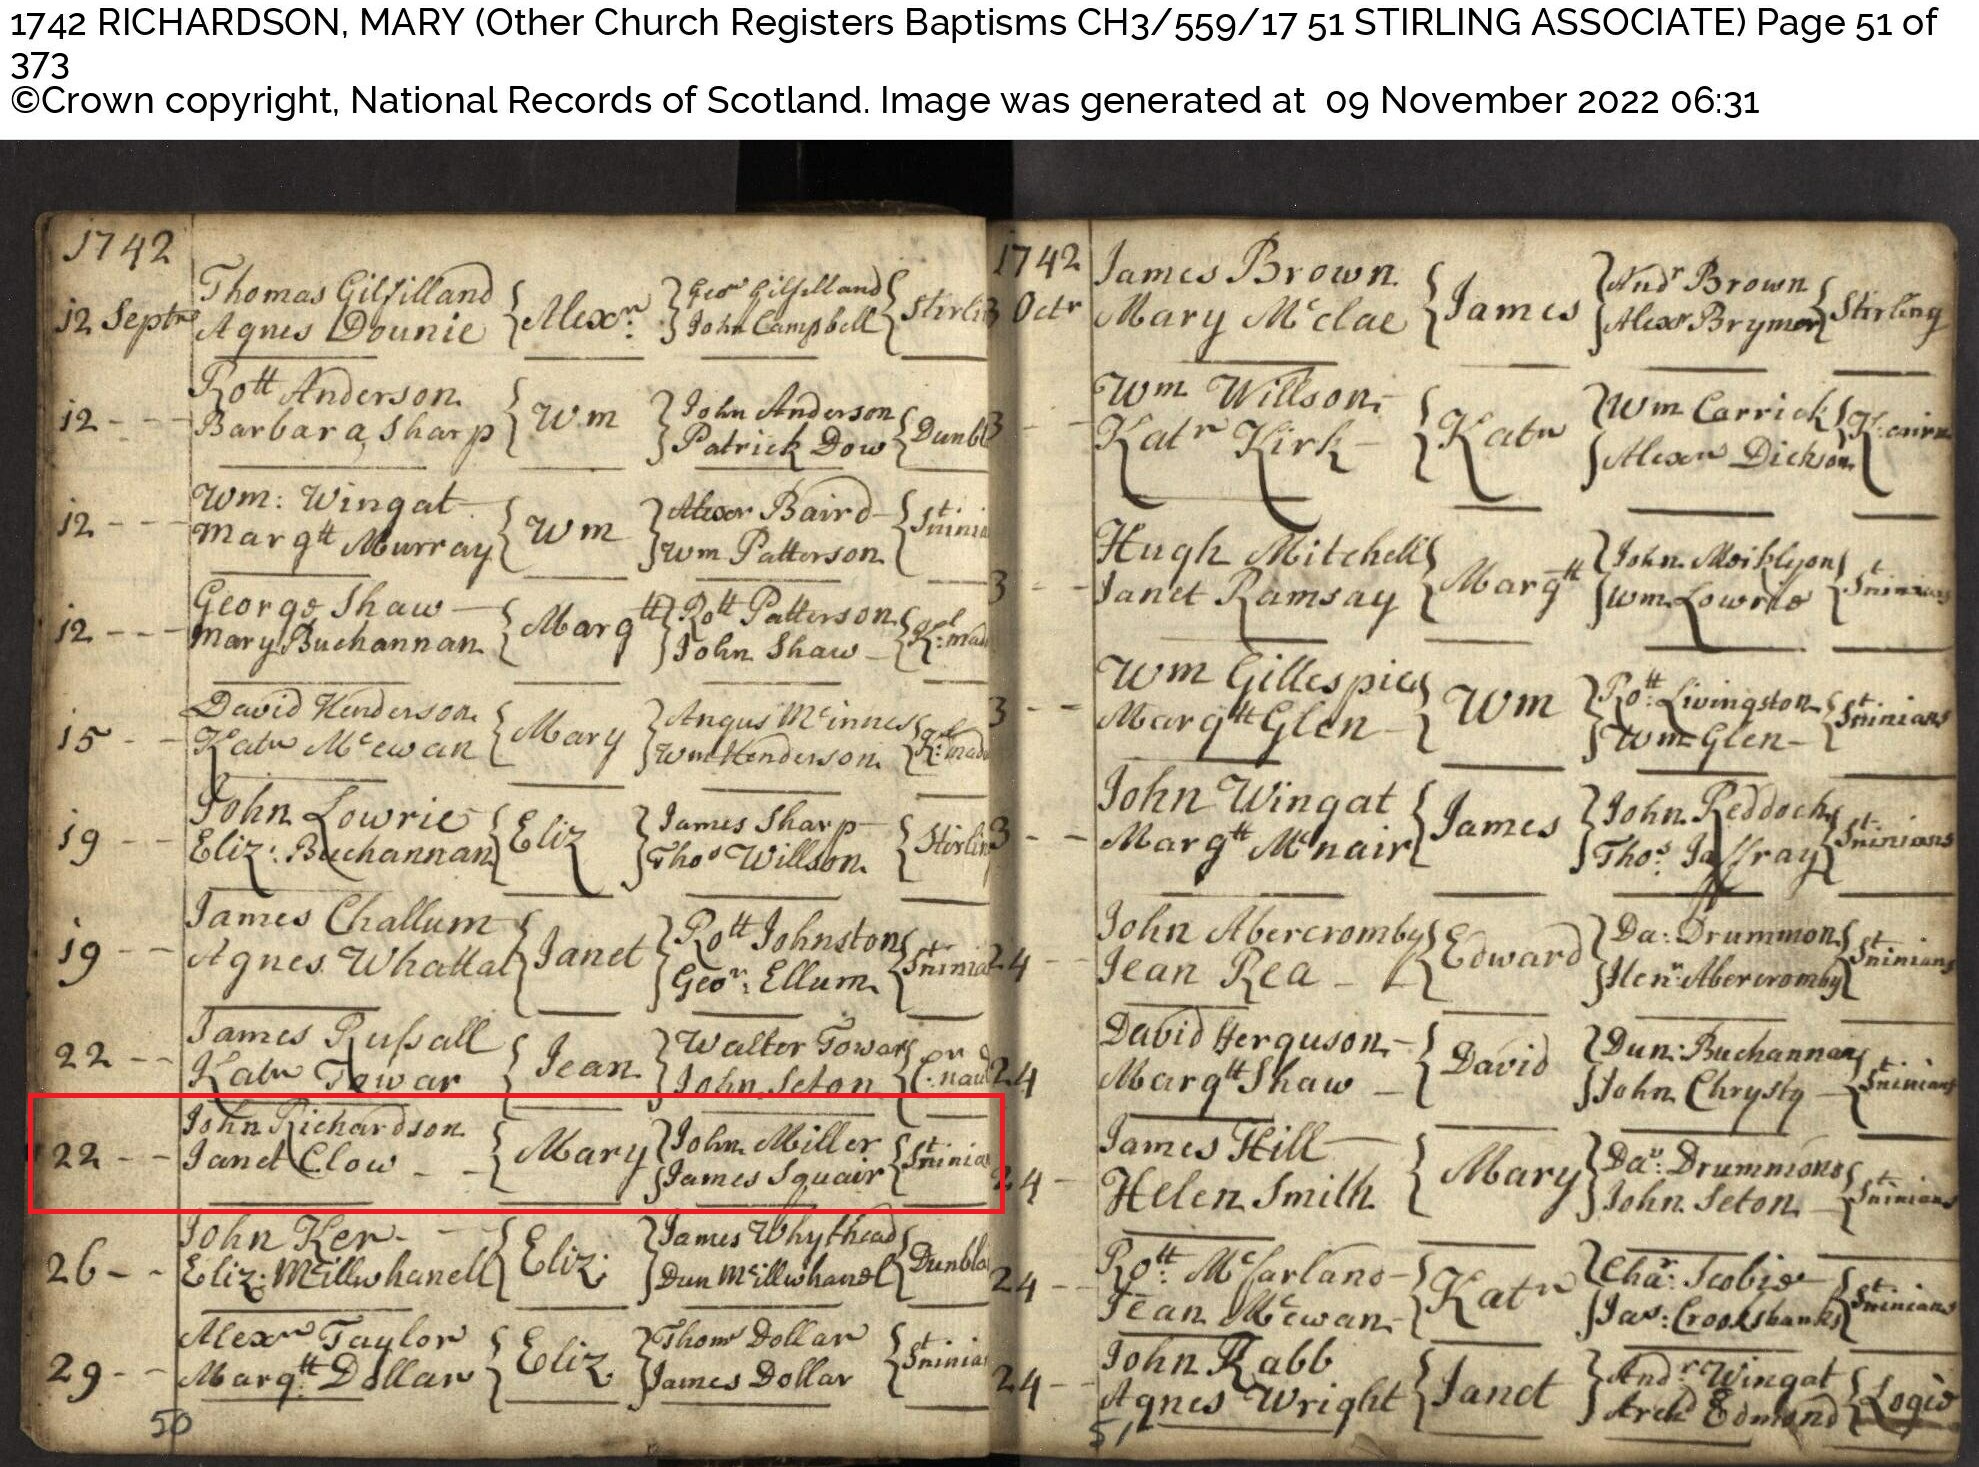 1742 RICHARDSON, MARY (Other Church Registers Baptisms CH3/559/17 51 STIRLING ASSOCIATE) Page 51 of
373
©Crown copyright, National Records of Scotland. Image was generated at 09 November 2022 06:31
1742
Thomas Gilfilland { Alexr. } Geor Gilfilland {
12 Septr Agnes Dounie John Campbell Stirlin
Rott Anderson { Wm } John Anderson {
12 - - - Barbara Sharp Patrick Dow Dunbl
Wm: Wingat { Wm } Alexr Baird - {
12 - - - Margtt Murray Wm Patterson St ninia
George Shaw - { Margtt } Rott Patterson {
12 - - - Mary Buchannan John Shaw -
David Henderson { Mary } Angus McInnes {
15 - - Katr McEwan Wm Henderson
John Lowrie { Eliz } James Sharp {
19 - - Eliz: Buchannan Thos Willson Stirlin
James Challum { Janet } Rott Johnston {
19 - - Agnes Whattat Geor. Ellum St ninia
James Russall { Jean } Walter Towar {
22 - - Katr Towar John Seton
John Richardson { Mary } John Miller {
22 - - Janet Clow - - James Squair St ninia
John Ker - - { Eliz: } James Whythead {
26 - - Eliz: McIllwhanell Dun McIllwhanel Dunbla
Alexr Taylor { Eliz } Thomr Dollar {
29 - - Margtt. Dollar James Dollar St ninia
50
1742
James Brown { James } Andr Brown {
3 Octr Mary McClae Alexr Brymer Stirling
Wm Willson { Katr } Wm Carrick {
3 - - Katr Kirk - Alexr Dickson
Hugh Mitchell { Margtt }
3 - - Janet Ramsay Wm Lowrie St ninians
Wm Gillespie { Wm } Rott. Livingston {
3 - - Margtt Glen - Wm Glen - St ninians
John Wingat { James } John Reddoch {
3 - - Margtt McNair Thos. Jaffray St ninians
John Abercromby { Edward } Da: Drummon {
24 - - Jean Rea - - Henr: Abercromby St ninians
David Ferguson - { David } Dun: Buchannan {
24 Margtt Shaw - John Chrysty - St ninians
James Hill { Mary } Dav: Drummond {
24 - Helen Smith John Seton - St ninians
Rott. McFarland - { Katr } Char: Scobie {
24 - - Jean McEwan - Jas: Crookshanks St ninians
John Rabb { Janet } Andr Wingat {
24 - - Agnes Wright Archd Edmond Logie
51